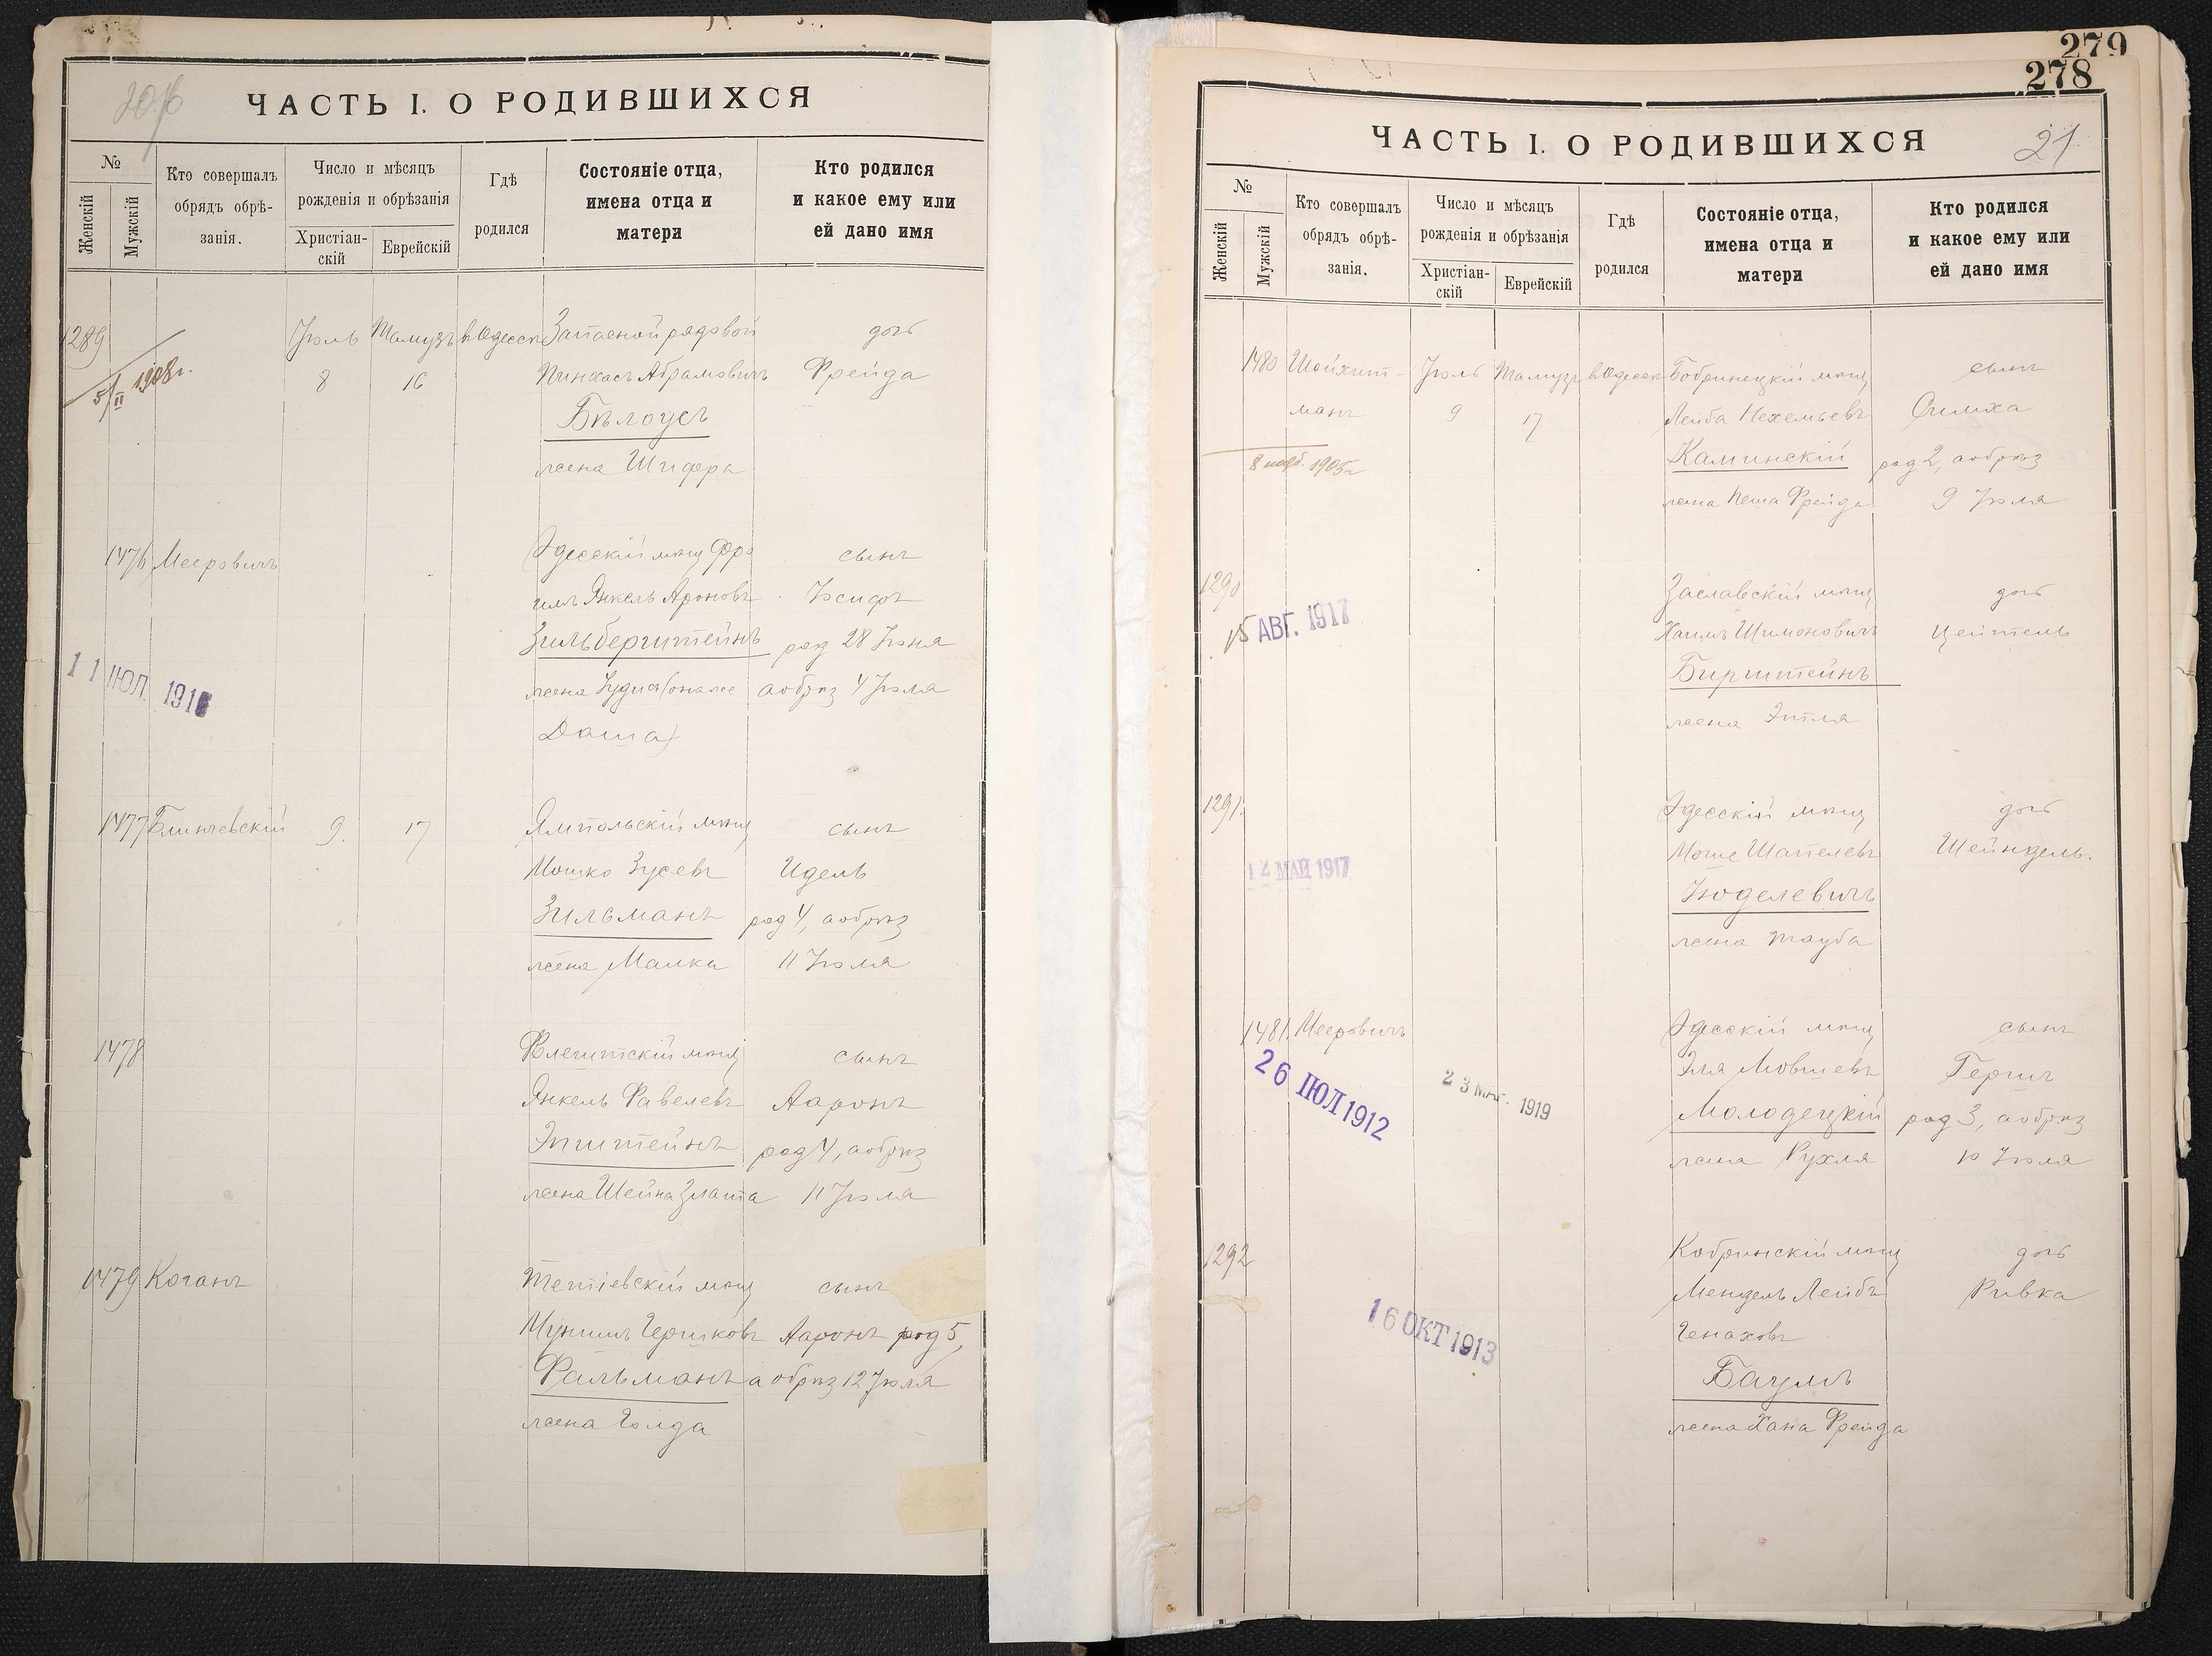 ЧАСТЬ I. О РОДИВШИХСЯ
№
Женскій
Мужскій
Кто совершалъ
обрядъ обрѣ-
занія.
Число и мѣсяцъ
рожденія и обрѣзанія
Христіан-
скій
Еврейскій
Гдѣ
родился
Состояніе отца,
имена отца и
матери
Кто родился
и какое ему или
ей дано имя
1289
5/II 1908г.
Іюль Тамузъ въ Одессѣ Запасной рядовой дочь
8 16 Пинхасъ Абрамовичъ Фрейда
Бѣлоусъ
жена Шифра
1476 Мееровичъ Одесскій мѣщ Фро сынъ
имъ Янкель Ароновъ Іосифъ
Зильберштейнъ род 28 Іюня
жена Іудись (она же а обрѣз 4 Іюля
Даша)
11 ЮЛ. 191
1477 Блинчевскій 9. 17 Ямпольскій мѣщ сынъ
Мошко Зусевъ Идель
Зильманъ род 4, а обрѣз
жена Малка 11 Іюля
1478 мѣщ сынъ
Янкель Фавелевъ Ааронъ
Эпштейнъ род 4, а обрѣз
жена Шейна Злата 11 Іюля
1479 Коганъ Тетіевскій мѣщ сынъ
Гершковъ Ааронъ род 5,
Фальманъ а обрѣз 12 Іюля
жена Голда
279
278
21
ЧАСТЬ I. О РОДИВШИХСЯ
№
Женскій
Мужскій
Кто совершалъ
обрядъ обрѣ-
занія.
Число и мѣсяцъ
рожденія и обрѣзанія
Христіан-
скій
Еврейскій
Гдѣ
родился
Состояніе отца,
имена отца и
матери
Кто родился
и какое ему или
ей дано имя
1480 Шойхит- Іюль Тамузъ въ Одессѣ Бобринецкій мѣщ сынъ
манъ 9 17 Лейба Нехемьевъ Симха
8 нояб. 1905г Каминскій род 2, а обрѣз
жена Песя Фрейда 9 Іюля
1290 Заславскій мѣщ дочь
15 АВГ. 1917 Хаимъ Шимоновичъ Цейтель
Бирштейнъ
жена Этля
1291. Одесскій мѣщ дочь
12 МАЙ 1917 Моше Шапселевъ Шейндель.
Іюделевичъ
жена Тауба
1481. Мееровичъ Одесскій мѣщ сынъ
26 ІЮЛ 1912 23 МАГ. 1919 Эля Мовшевъ Гершъ
Молодецкій род 3, а обрѣз
жена Рухля 10 Іюля
1292 Кобринскій мѣщ дочь
Мендель Лейбъ Ривка
16 ОКТ 1913 Генаховъ
Баумъ
жена Хана Фрейда